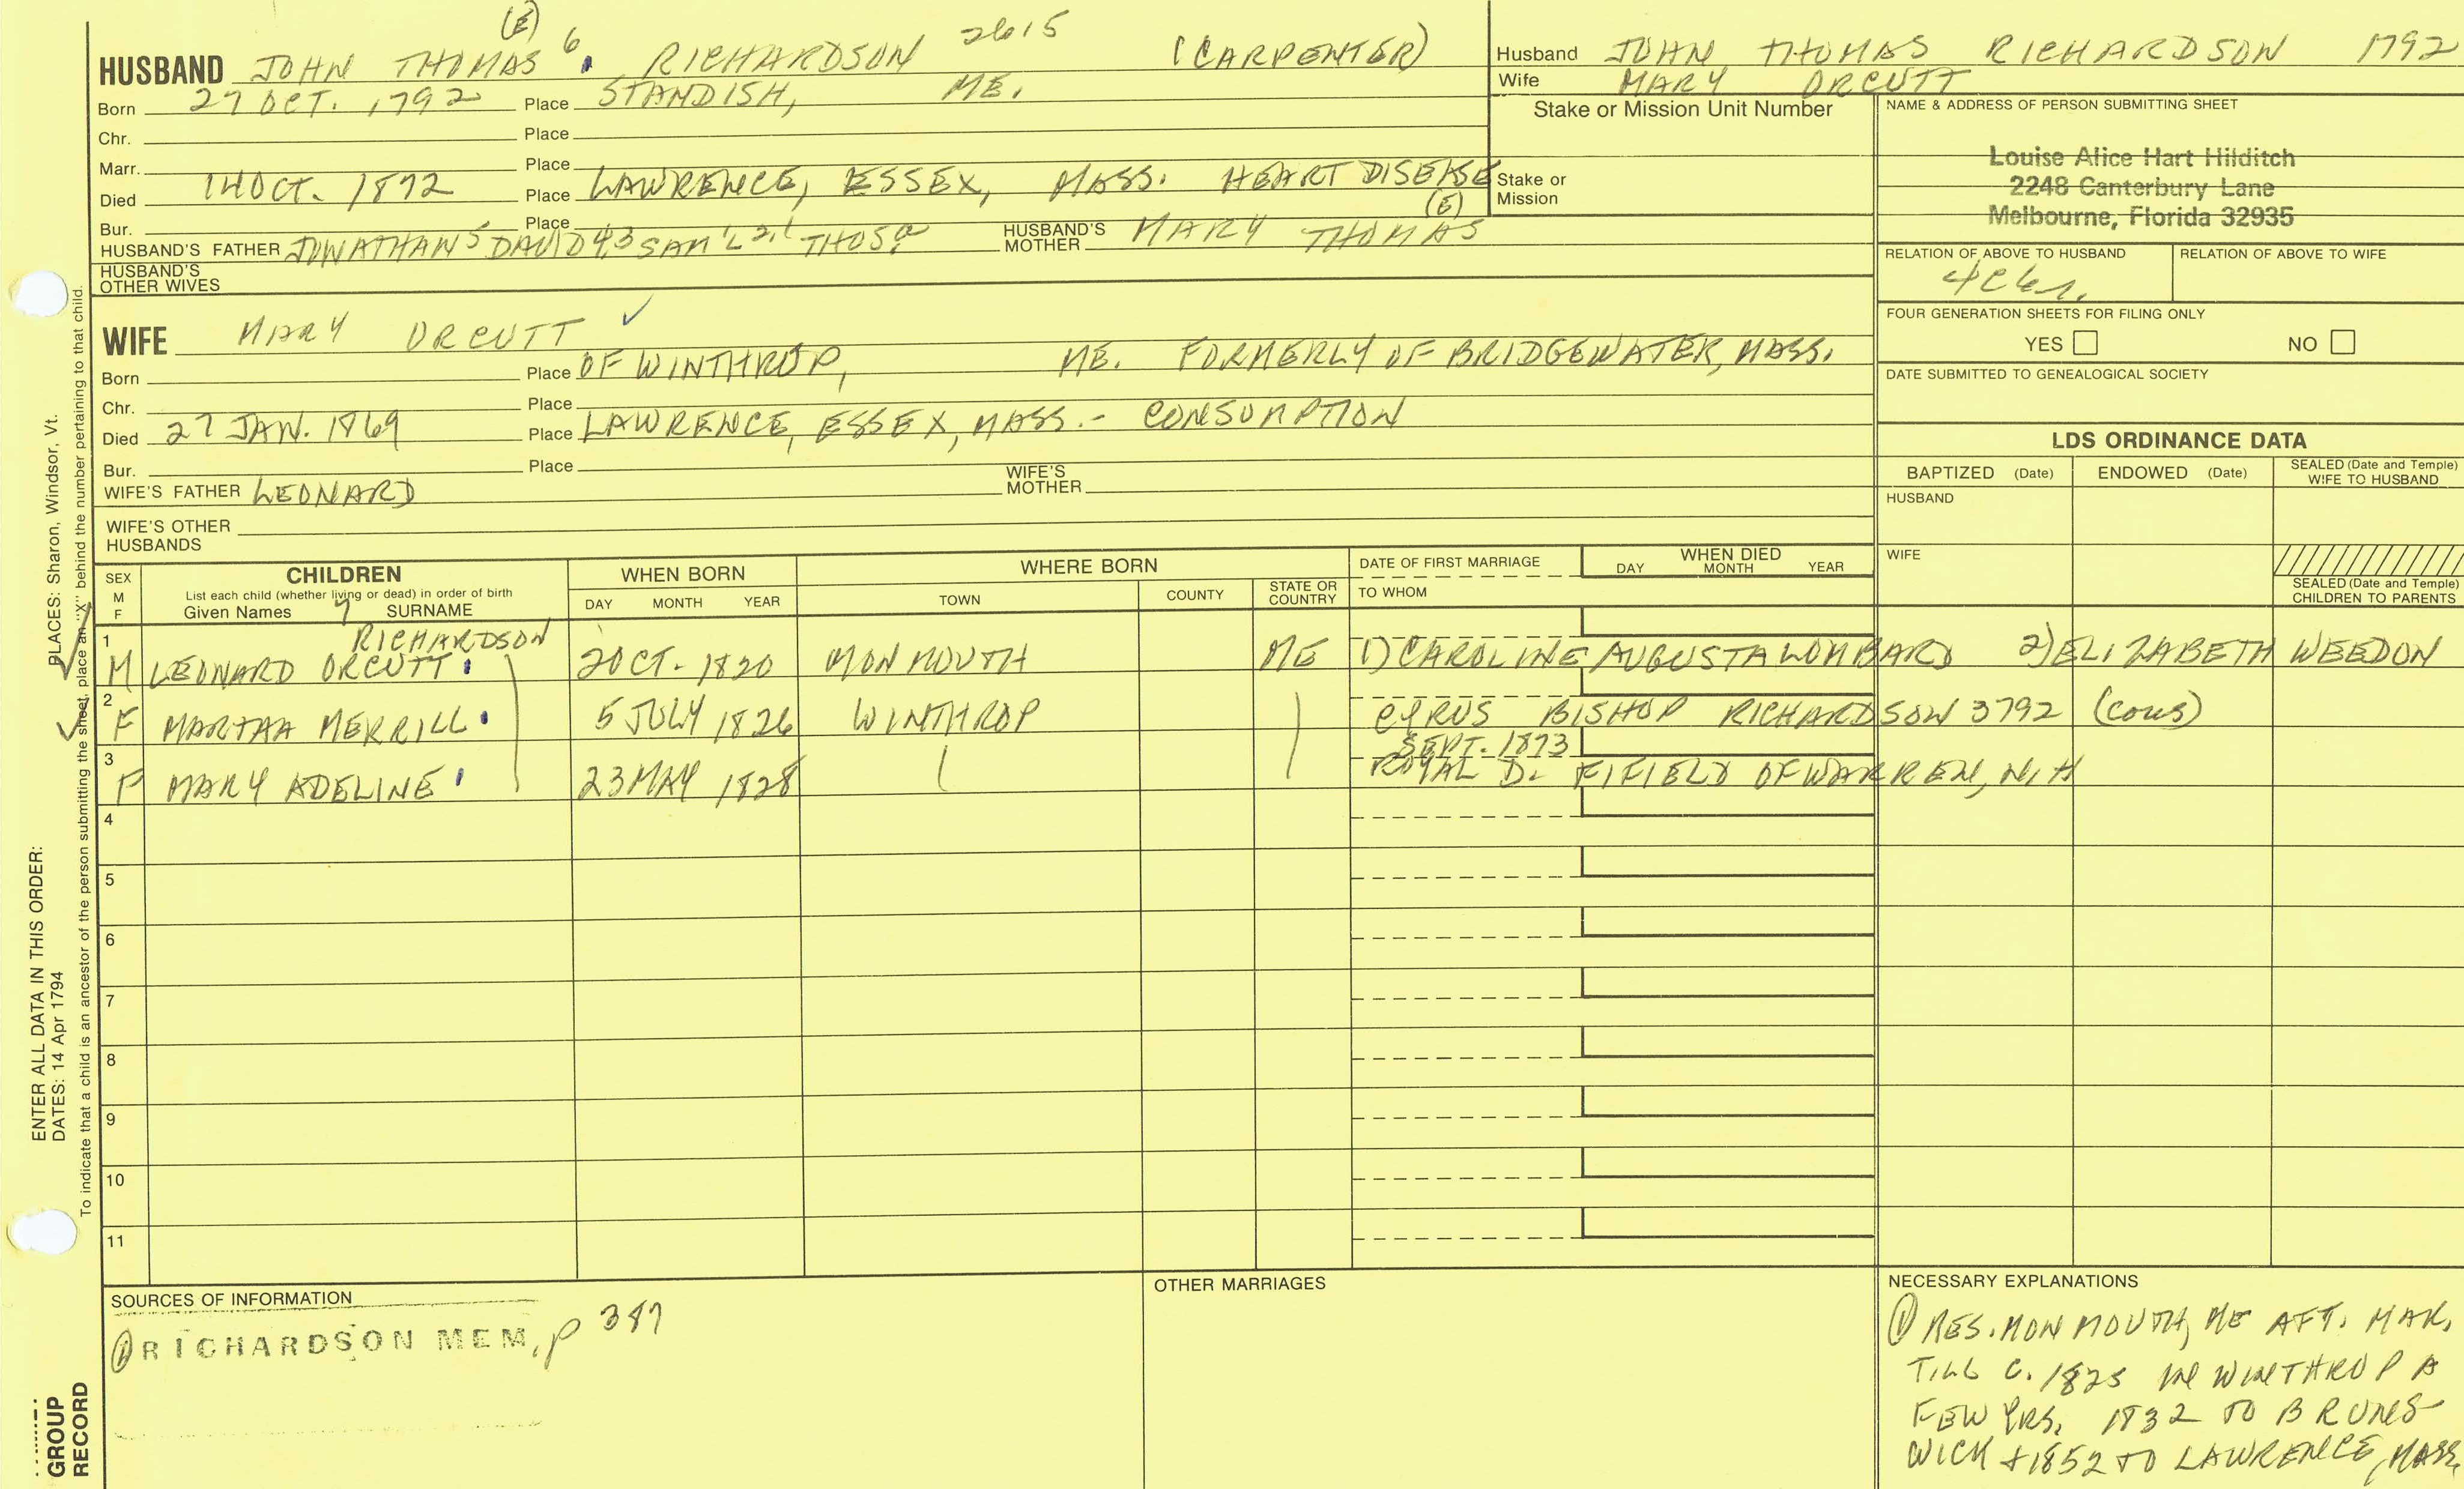 (E)
HUSBAND JOHN THOMAS 6. RICHARDSON 2615 (CARPENTER)
Born 27 OCT. 1792 Place STANDISH, ME.
Chr. Place
Marr. Place
Died 14 OCT. 1872 Place LAWRENCE, ESSEX, MASS. HEART DISEASE
Bur. Place (E)
HUSBAND'S FATHER JONATHAN 5 DAVID 4,3 SAM'L 2,1 THOS. HUSBAND'S MOTHER MARY THOMAS
HUSBAND'S OTHER WIVES
WIFE MARY ORCUTT ✓
Born Place OF WINTHROP, ME. FORMERLY OF BRIDGEWATER, MASS.
Chr. Place
Died 27 JAN. 1869 Place LAWRENCE, ESSEX, MASS. - CONSUMPTION
Bur. Place
WIFE'S FATHER LEONARD WIFE'S MOTHER
WIFE'S OTHER HUSBANDS
Husband JOHN THOMAS RICHARDSON 1792
Wife MARY ORCUTT
Stake or Mission Unit Number
Stake or Mission
NAME & ADDRESS OF PERSON SUBMITTING SHEET
Louise Alice Hart Hilditch
2248 Canterbury Lane
Melbourne, Florida 32935
RELATION OF ABOVE TO HUSBAND RELATION OF ABOVE TO WIFE
FOUR GENERATION SHEETS FOR FILING ONLY
YES NO
DATE SUBMITTED TO GENEALOGICAL SOCIETY
LDS ORDINANCE DATA
BAPTIZED (Date) ENDOWED (Date) SEALED (Date and Temple) WIFE TO HUSBAND
HUSBAND
WIFE
SEALED (Date and Temple) CHILDREN TO PARENTS
SEX M F
CHILDREN
List each child (whether living or dead) in order of birth
Given Names SURNAME
WHEN BORN
DAY MONTH YEAR
WHERE BORN
TOWN COUNTY STATE OR COUNTRY
DATE OF FIRST MARRIAGE
TO WHOM
WHEN DIED
DAY MONTH YEAR
7
RICHARDSON
1 M LEONARD ORCUTT 2 OCT. 1820 MONMOUTH ME 1) CAROLINE AUGUSTA LOMBARD 2) ELIZABETH WEEDON
2 F MARTHA MERRILL 5 JULY 1826 WINTHROP CYRUS BISHOP RICHARDSON 3792 (cous)
SEPT. 1873
3 F MARY ADELINE 23 MAY 1828 ROYAL D. FIFIELD OF WARREN, N.H
4
5
6
7
8
9
10
11
SOURCES OF INFORMATION
① RICHARDSON MEM, p 387
OTHER MARRIAGES
NECESSARY EXPLANATIONS
① RES. MONMOUTH, ME AFT. MAR.
TILL C. 1825 IN WINTHROP A
FEW YRS. 1832 TO BRUNS-
WICK + 1852 TO LAWRENCE, MASS.
ENTER ALL DATA IN THIS ORDER:
DATES: 14 Apr 1794
PLACES: Sharon, Windsor, Vt.
To indicate that a child is an ancestor of the person submitting the sheet, place an "X" behind the number pertaining to that child.
GROUP
RECORD